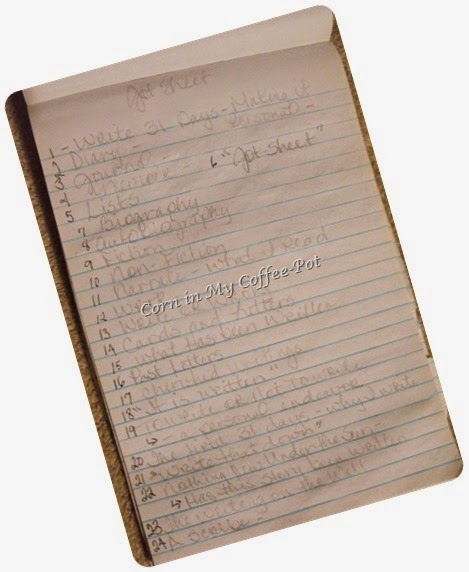 Jot Sheet
1 - Write 31 Days - Making it
personal -
2 Diary -
3 Journal -
4 Memoire -
5 Lists
6 "Jot-Sheet"
7 Biography
8 Autobiography
9 Fiction
10 Non-Fiction
11 - What I Read
12
13 Write
14 Cards and Letters
15 What Has Been Written
16 Past Letters
17 Cherished Writings
18 "It is written"
19 To Write or Not to Write
↳ a personal endeavor
20 The Until 31 days - why I write
21 "Write that down"
22 Nothing New Under the Sun -
↳ Has this story been written
23 The writing on the Wall
24 A Scribe -
Corn in My Coffee Pot